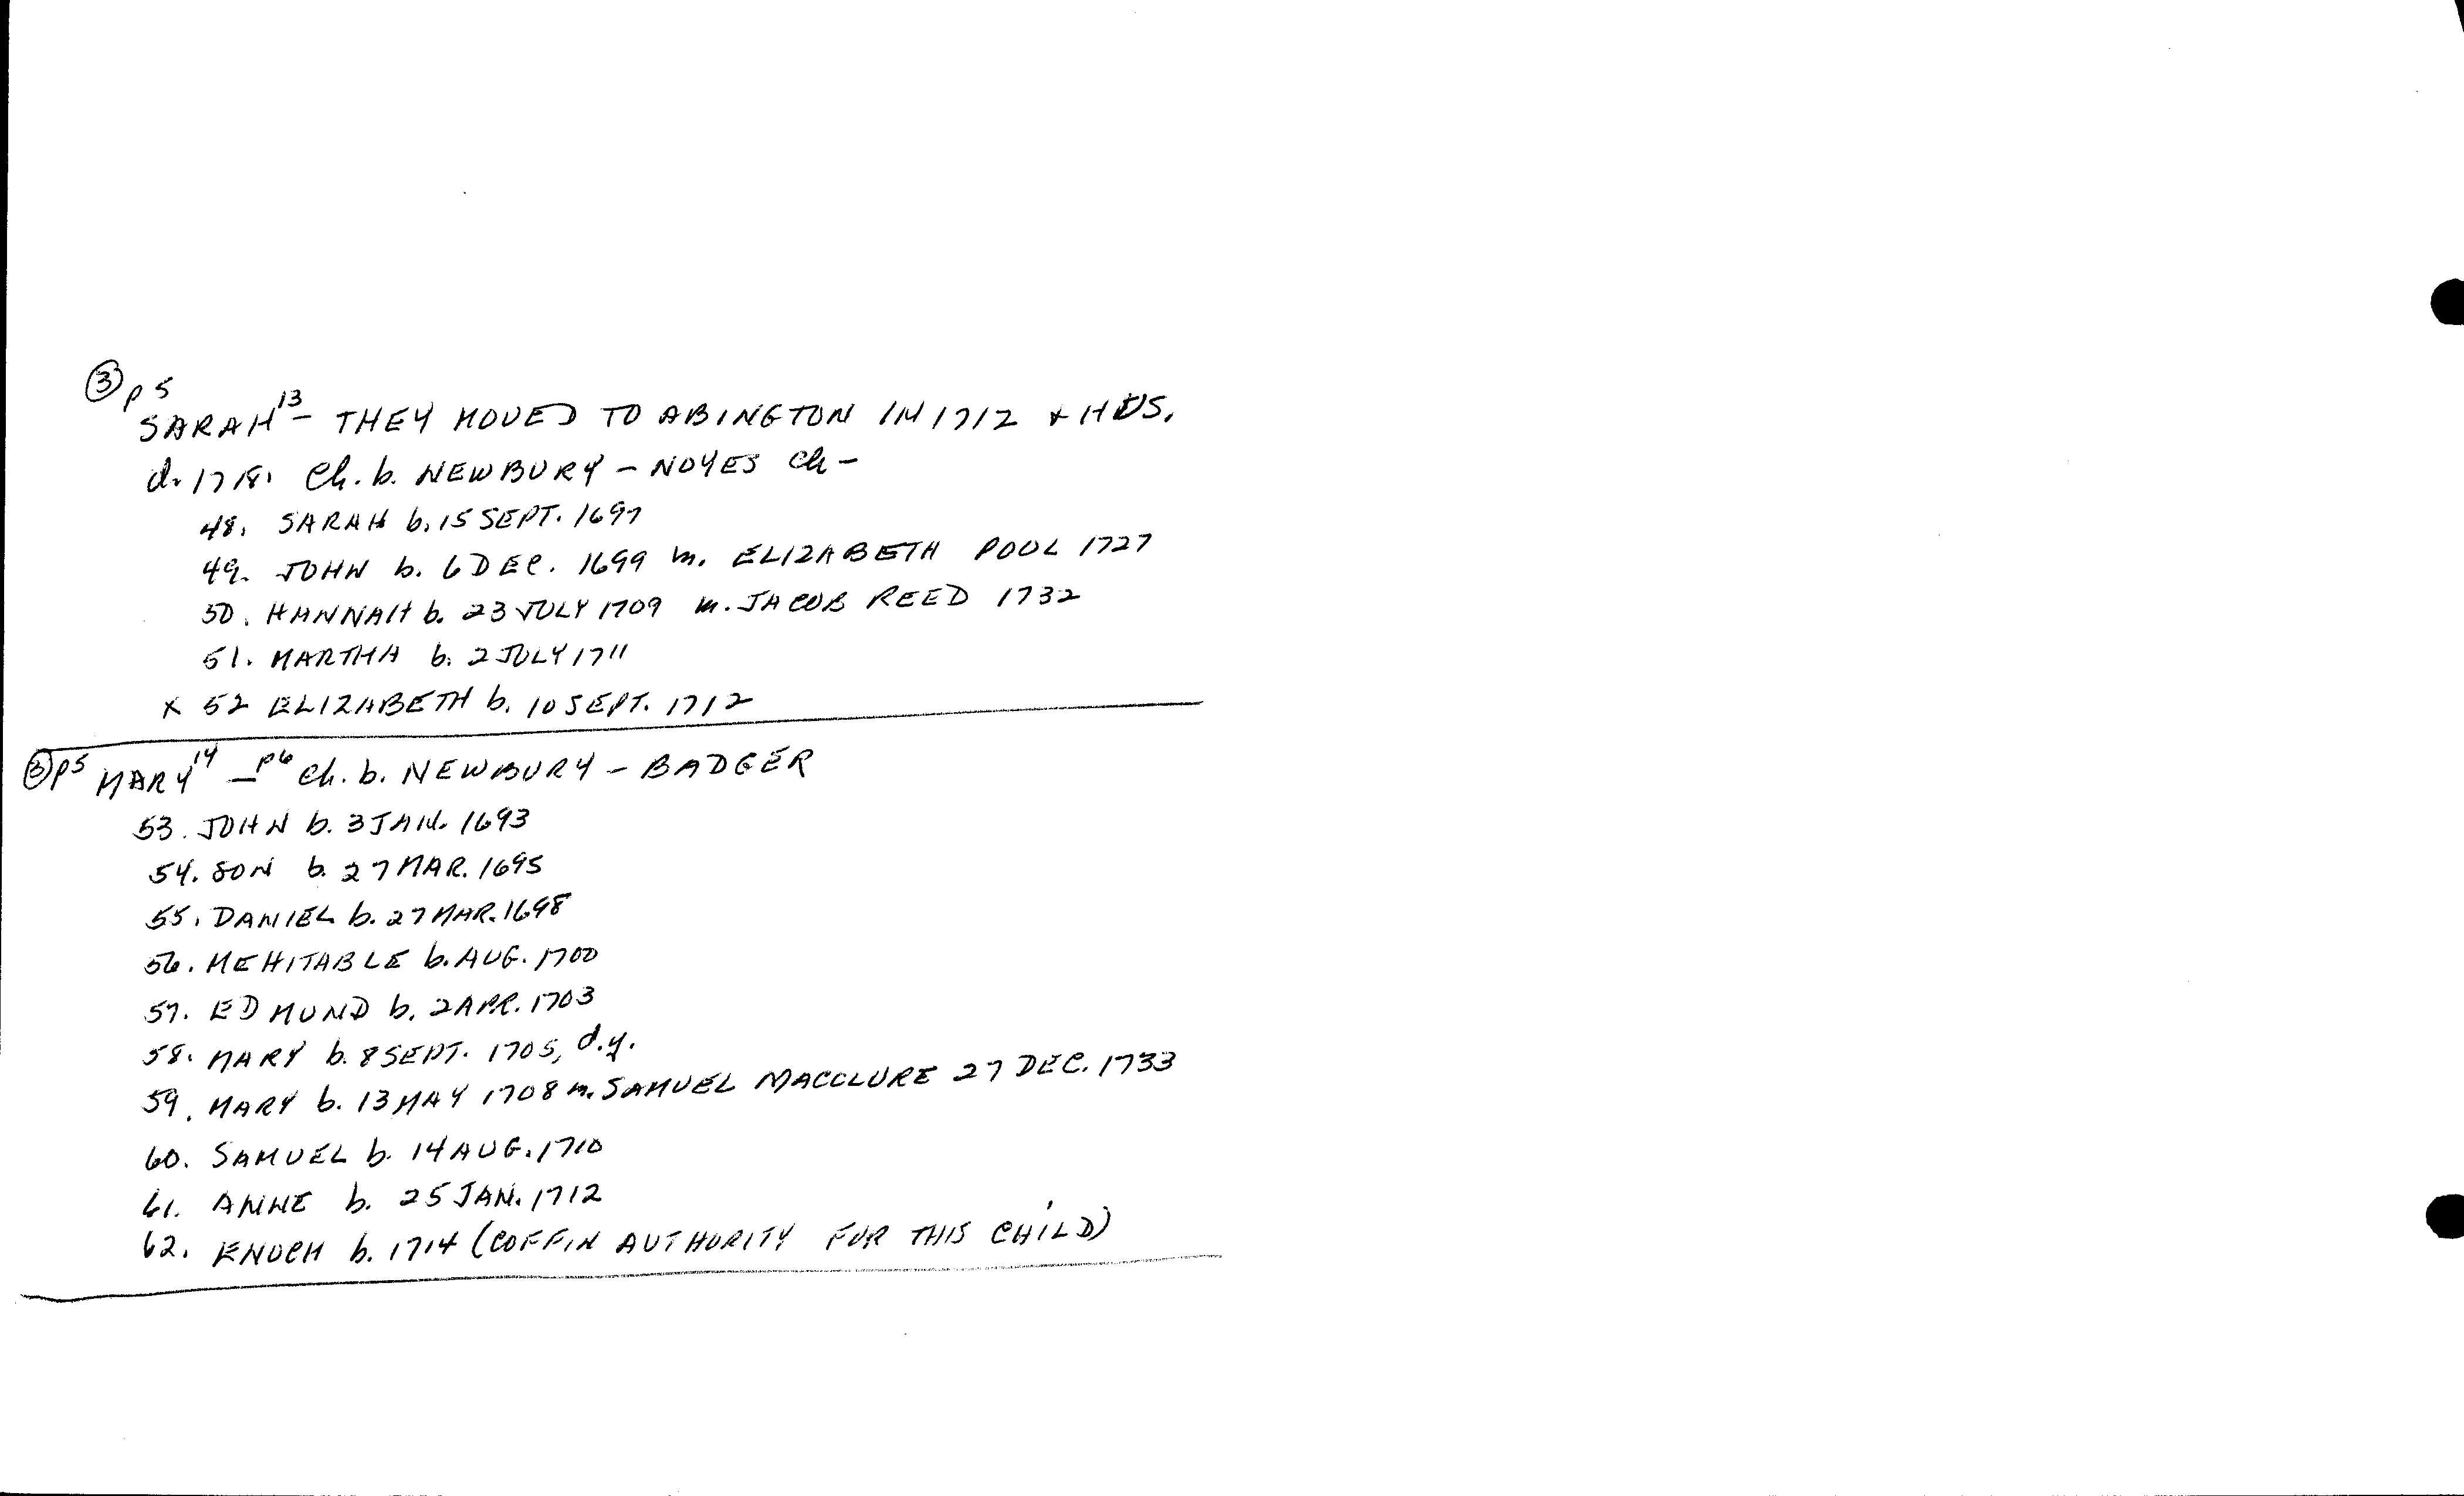 ③ p 5
SARAH¹³ – THEY MOVED TO ABINGTON IN 1712 + HUS.
d. 1718. Ch. b. NEWBURY – NOYES Ch –
48. SARAH b. 15 SEPT. 1697
49. JOHN b. 6 DEC. 1699 m. ELIZABETH POOL 1727
50. HANNAH b. 23 JULY 1709 m. JACOB REED 1732
51. MARTHA b. 2 JULY 1711
x 52 ELIZABETH b. 10 SEPT. 1712
③ p5 MARY¹⁴ – p6 Ch. b. NEWBURY – BADGER
53. JOHN b. 3 JAN. 1693
54. SON b. 27 MAR. 1695
55. DANIEL b. 27 MAR. 1698
56. MEHITABLE b. AUG. 1700
57. EDMUND b. 2 APR. 1703
58. MARY b. 8 SEPT. 1705, d.y.
59. MARY b. 13 MAY 1708 m. SAMUEL MACCLURE 27 DEC. 1733
60. SAMUEL b. 14 AUG. 1710
61. ANNE b. 25 JAN. 1712
62. ENOCH b. 1714 (COFFIN AUTHORITY FOR THIS CHILD)